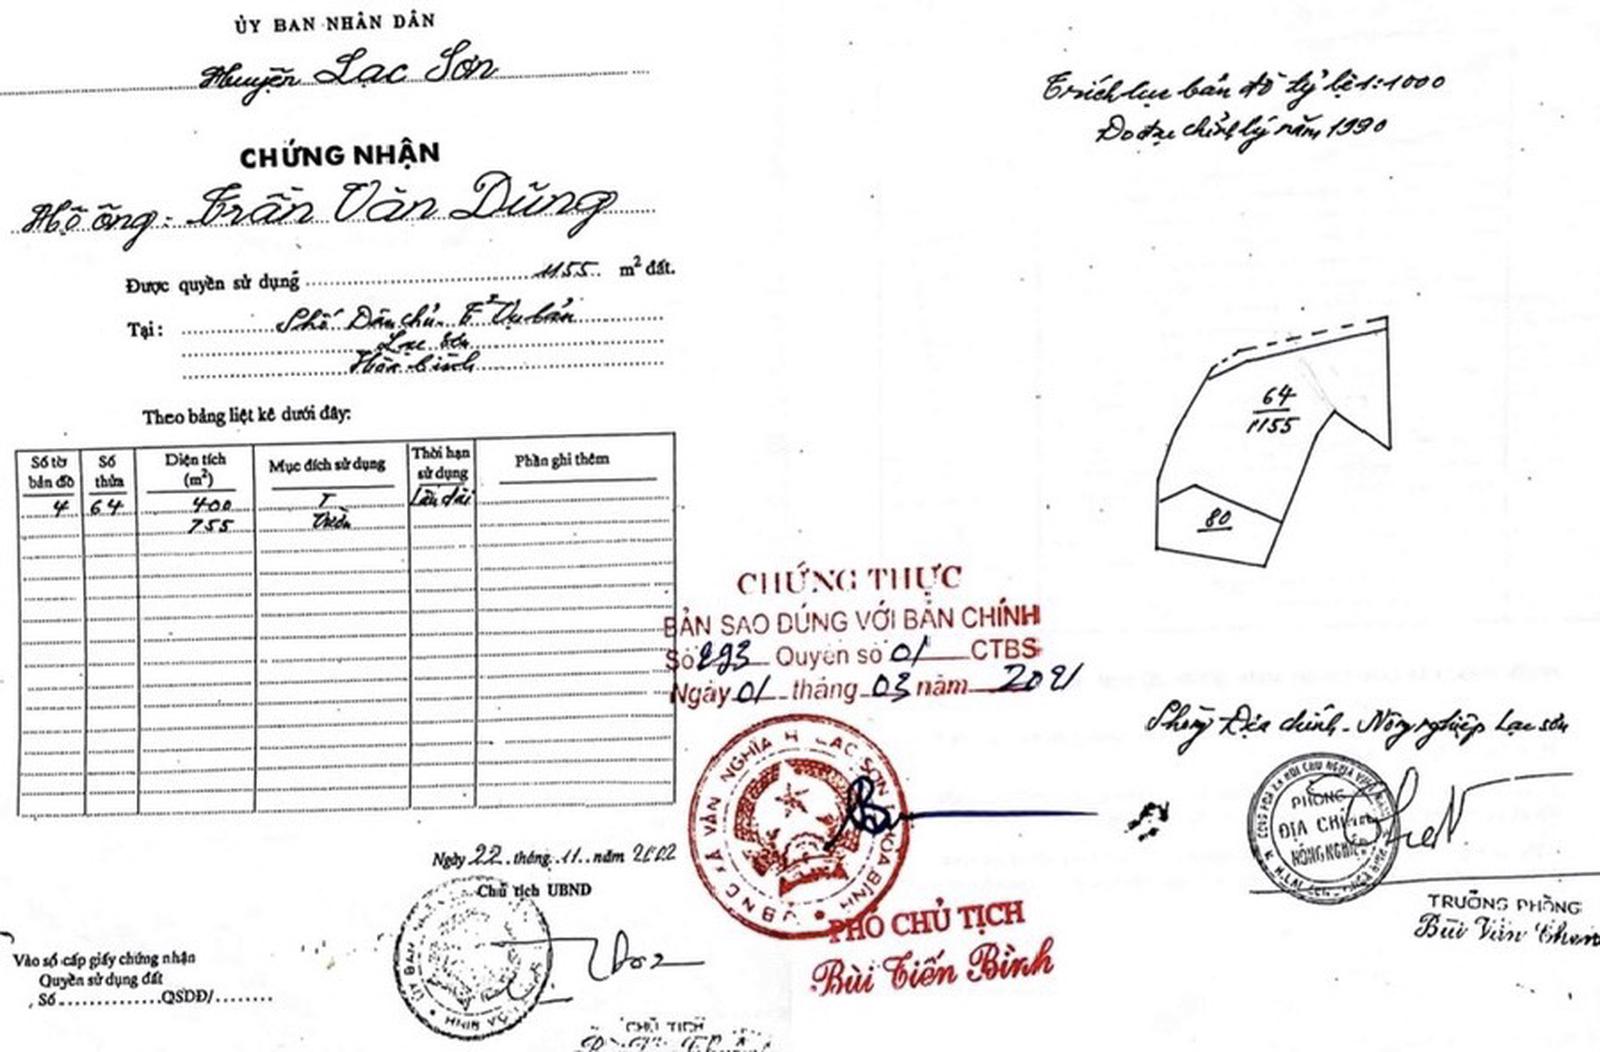 ỦY BAN NHÂN DÂN
Huyện Lạc Sơn
CHỨNG NHẬN
Hộ ông: Trần Văn Dũng
Được quyền sử dụng 1155 m² đất.
Tại: Phố Dân chủ - T² Vụ bản
Lạc Sơn
Hòa bình
Theo bảng liệt kê dưới đây:
Số tờ bản đồ Số thửa Diện tích (m²) Mục đích sử dụng Thời hạn sử dụng Phần ghi thêm
4 64 400 T Lâu dài
755 Vườn
Ngày 22 tháng 11 năm 2002
Chủ tịch UBND
CHỦ TỊCH
Vào sổ cấp giấy chứng nhận
Quyền sử dụng đất
Số QSDĐ/
CHỨNG THỰC
BẢN SAO ĐÚNG VỚI BẢN CHÍNH
Số 293 Quyển số 01 CTBS
Ngày 01 tháng 03 năm 2021
U.B.N.D XÃ VĂN NGHĨA H. LẠC SƠN T. HÒA BÌNH
PHÓ CHỦ TỊCH
Bùi Tiến Bình
Trích lục bản đồ tỷ lệ 1:1000
Đo đạc chỉnh lý năm 1990
64
1155
80
Phòng Địa chính - Nông nghiệp Lạc Sơn
PHÒNG
ĐỊA CHÍNH
NÔNG NGHIỆP
TRƯỞNG PHÒNG
Bùi Văn